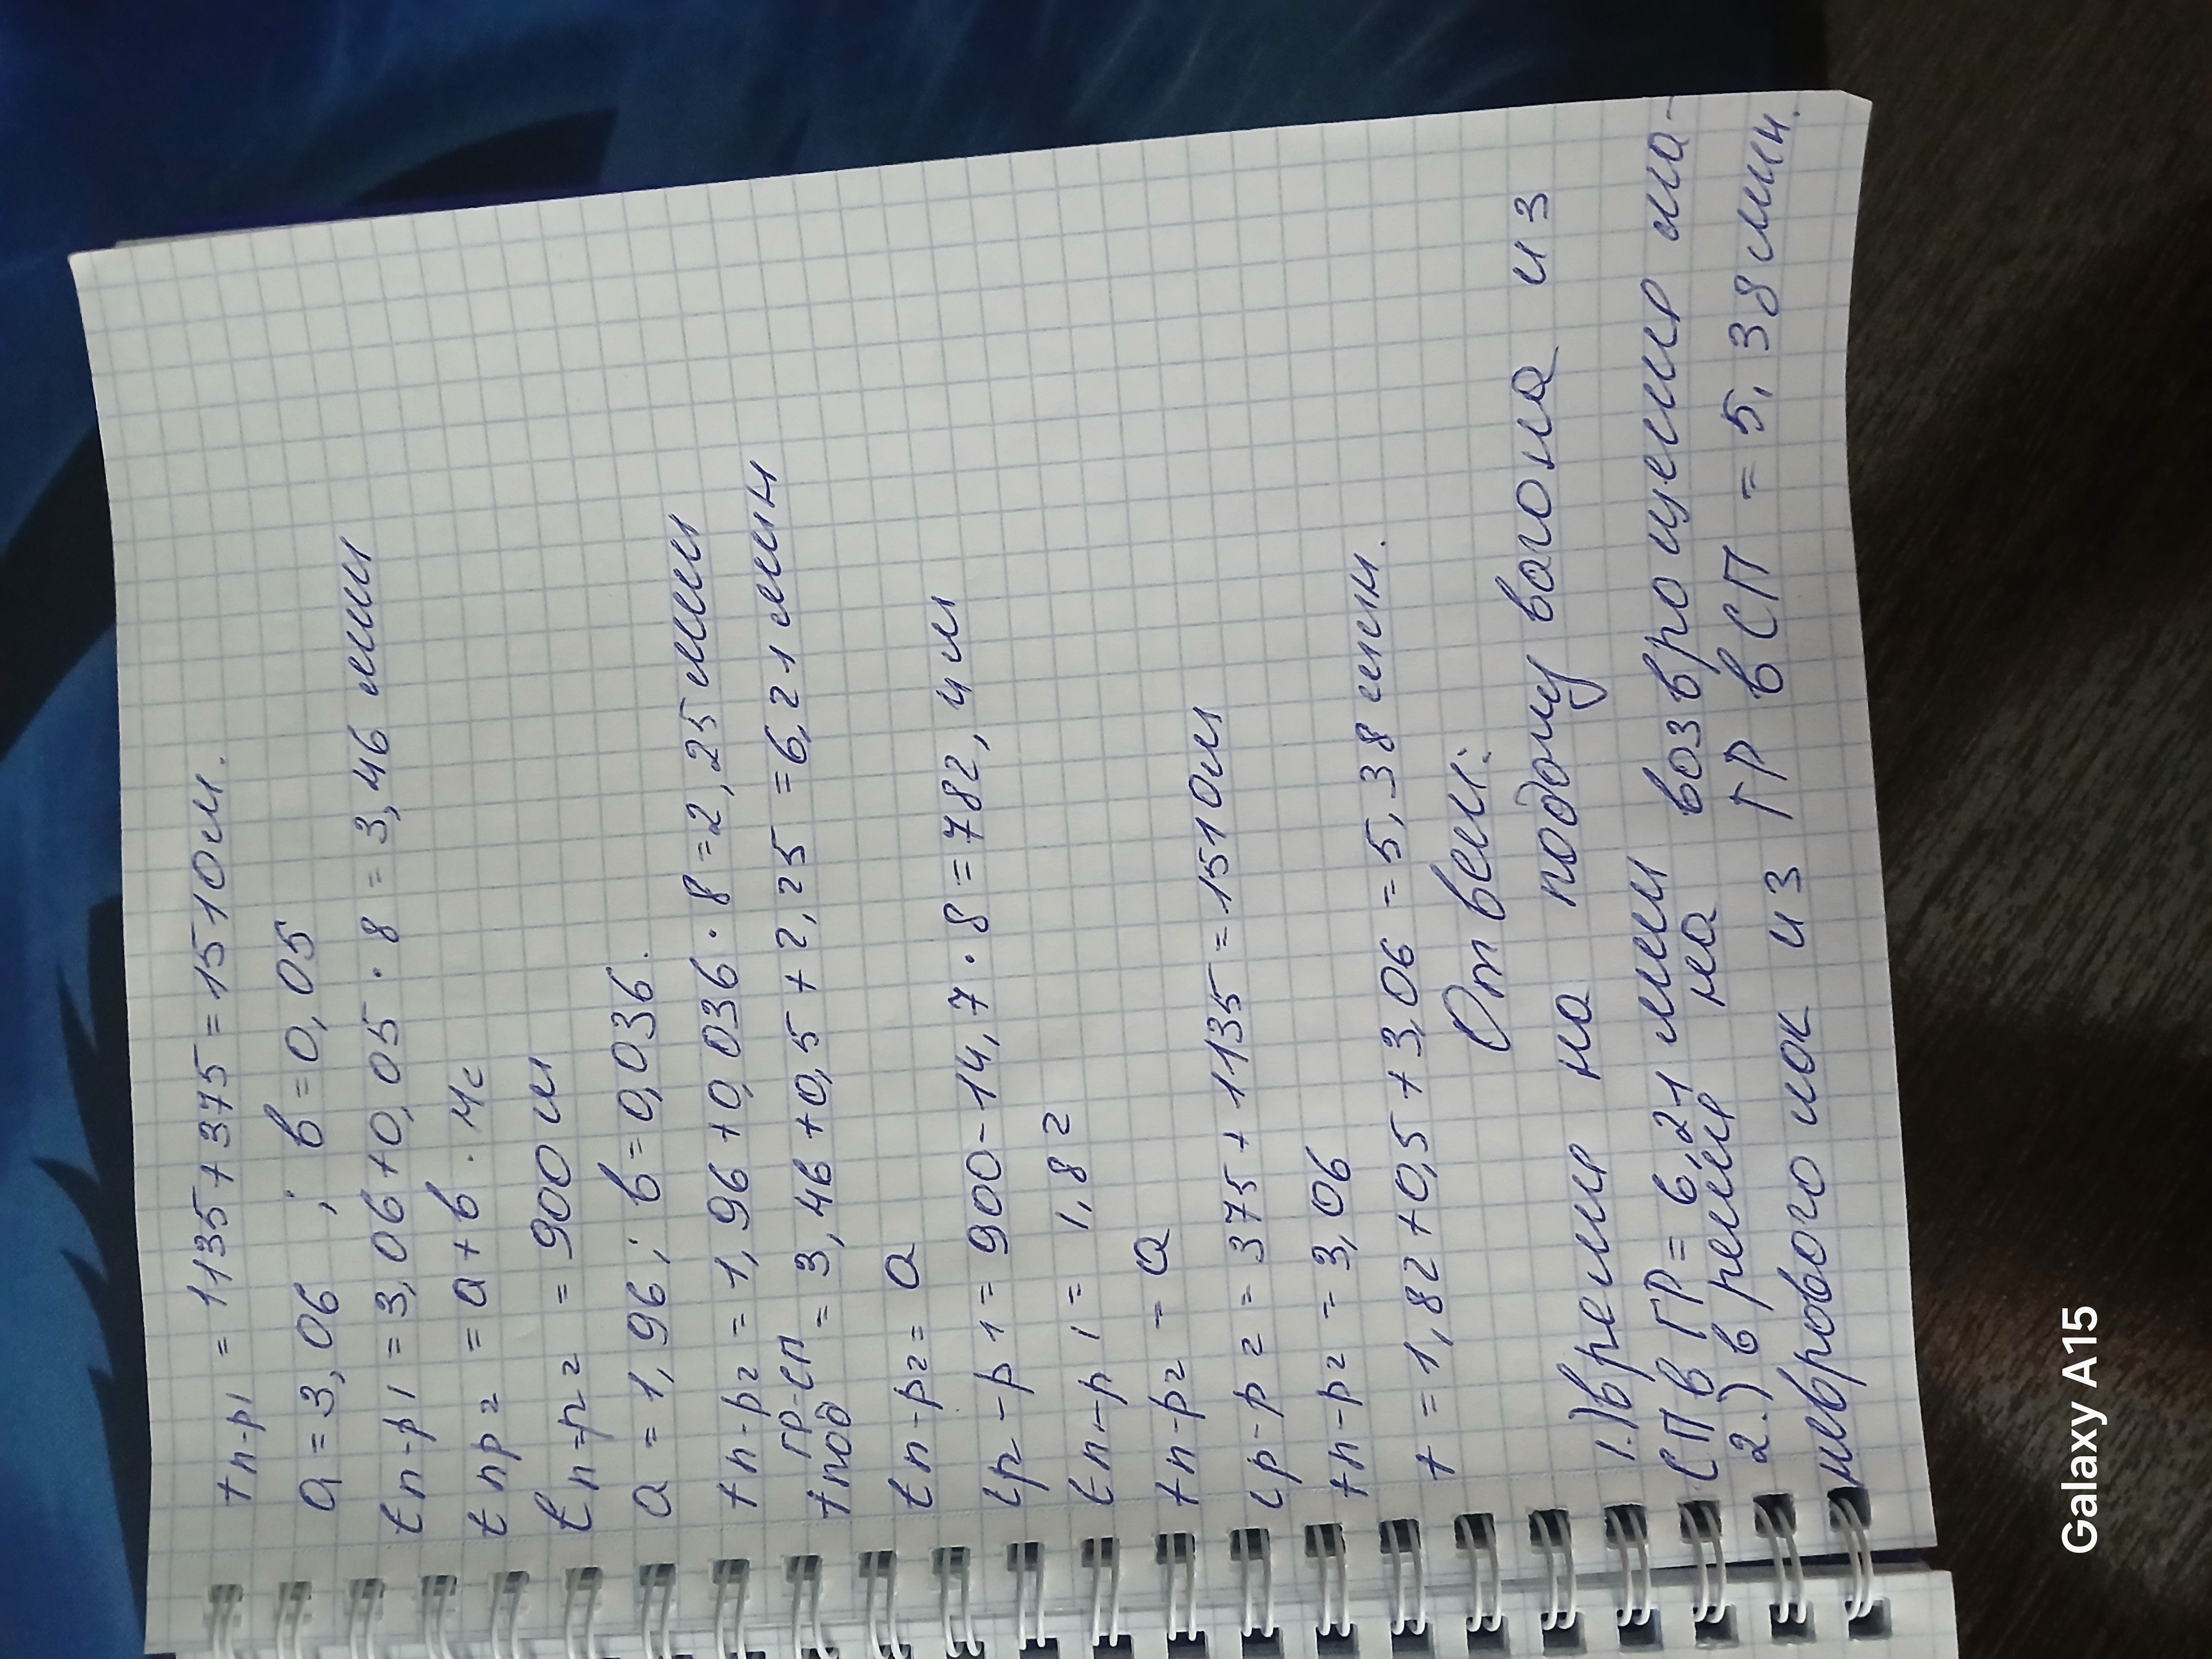 tп-р1 = 1135+375=1510м.
a=3,06 ; в=0,05
tп-р1=3,06+0,05·8=3,46 мин
tпр2 =а+в·мс
lп-р2 =900м
а=1,96; в=0,036.
tп-р2=1,96+0,036·8=2,25мин
tпод ГР-СП =3,46+0,5+2,25=6,21мин
tп-р2=а
lр-р1=900-14,7·8=782,4м
tп-р1=1,82
tп-р2-а
lр-р2=375+1135=1510м
tп-р2-3,06
t=1,82+0,5+3,06=5,38мин.
Ответ:
1.) время на подачу вагона из
СП в ГР=6,21 мин
2.) время на возвращение ма-
неврового лок из ГР в СП = 5,38мин.
Galaxy A15